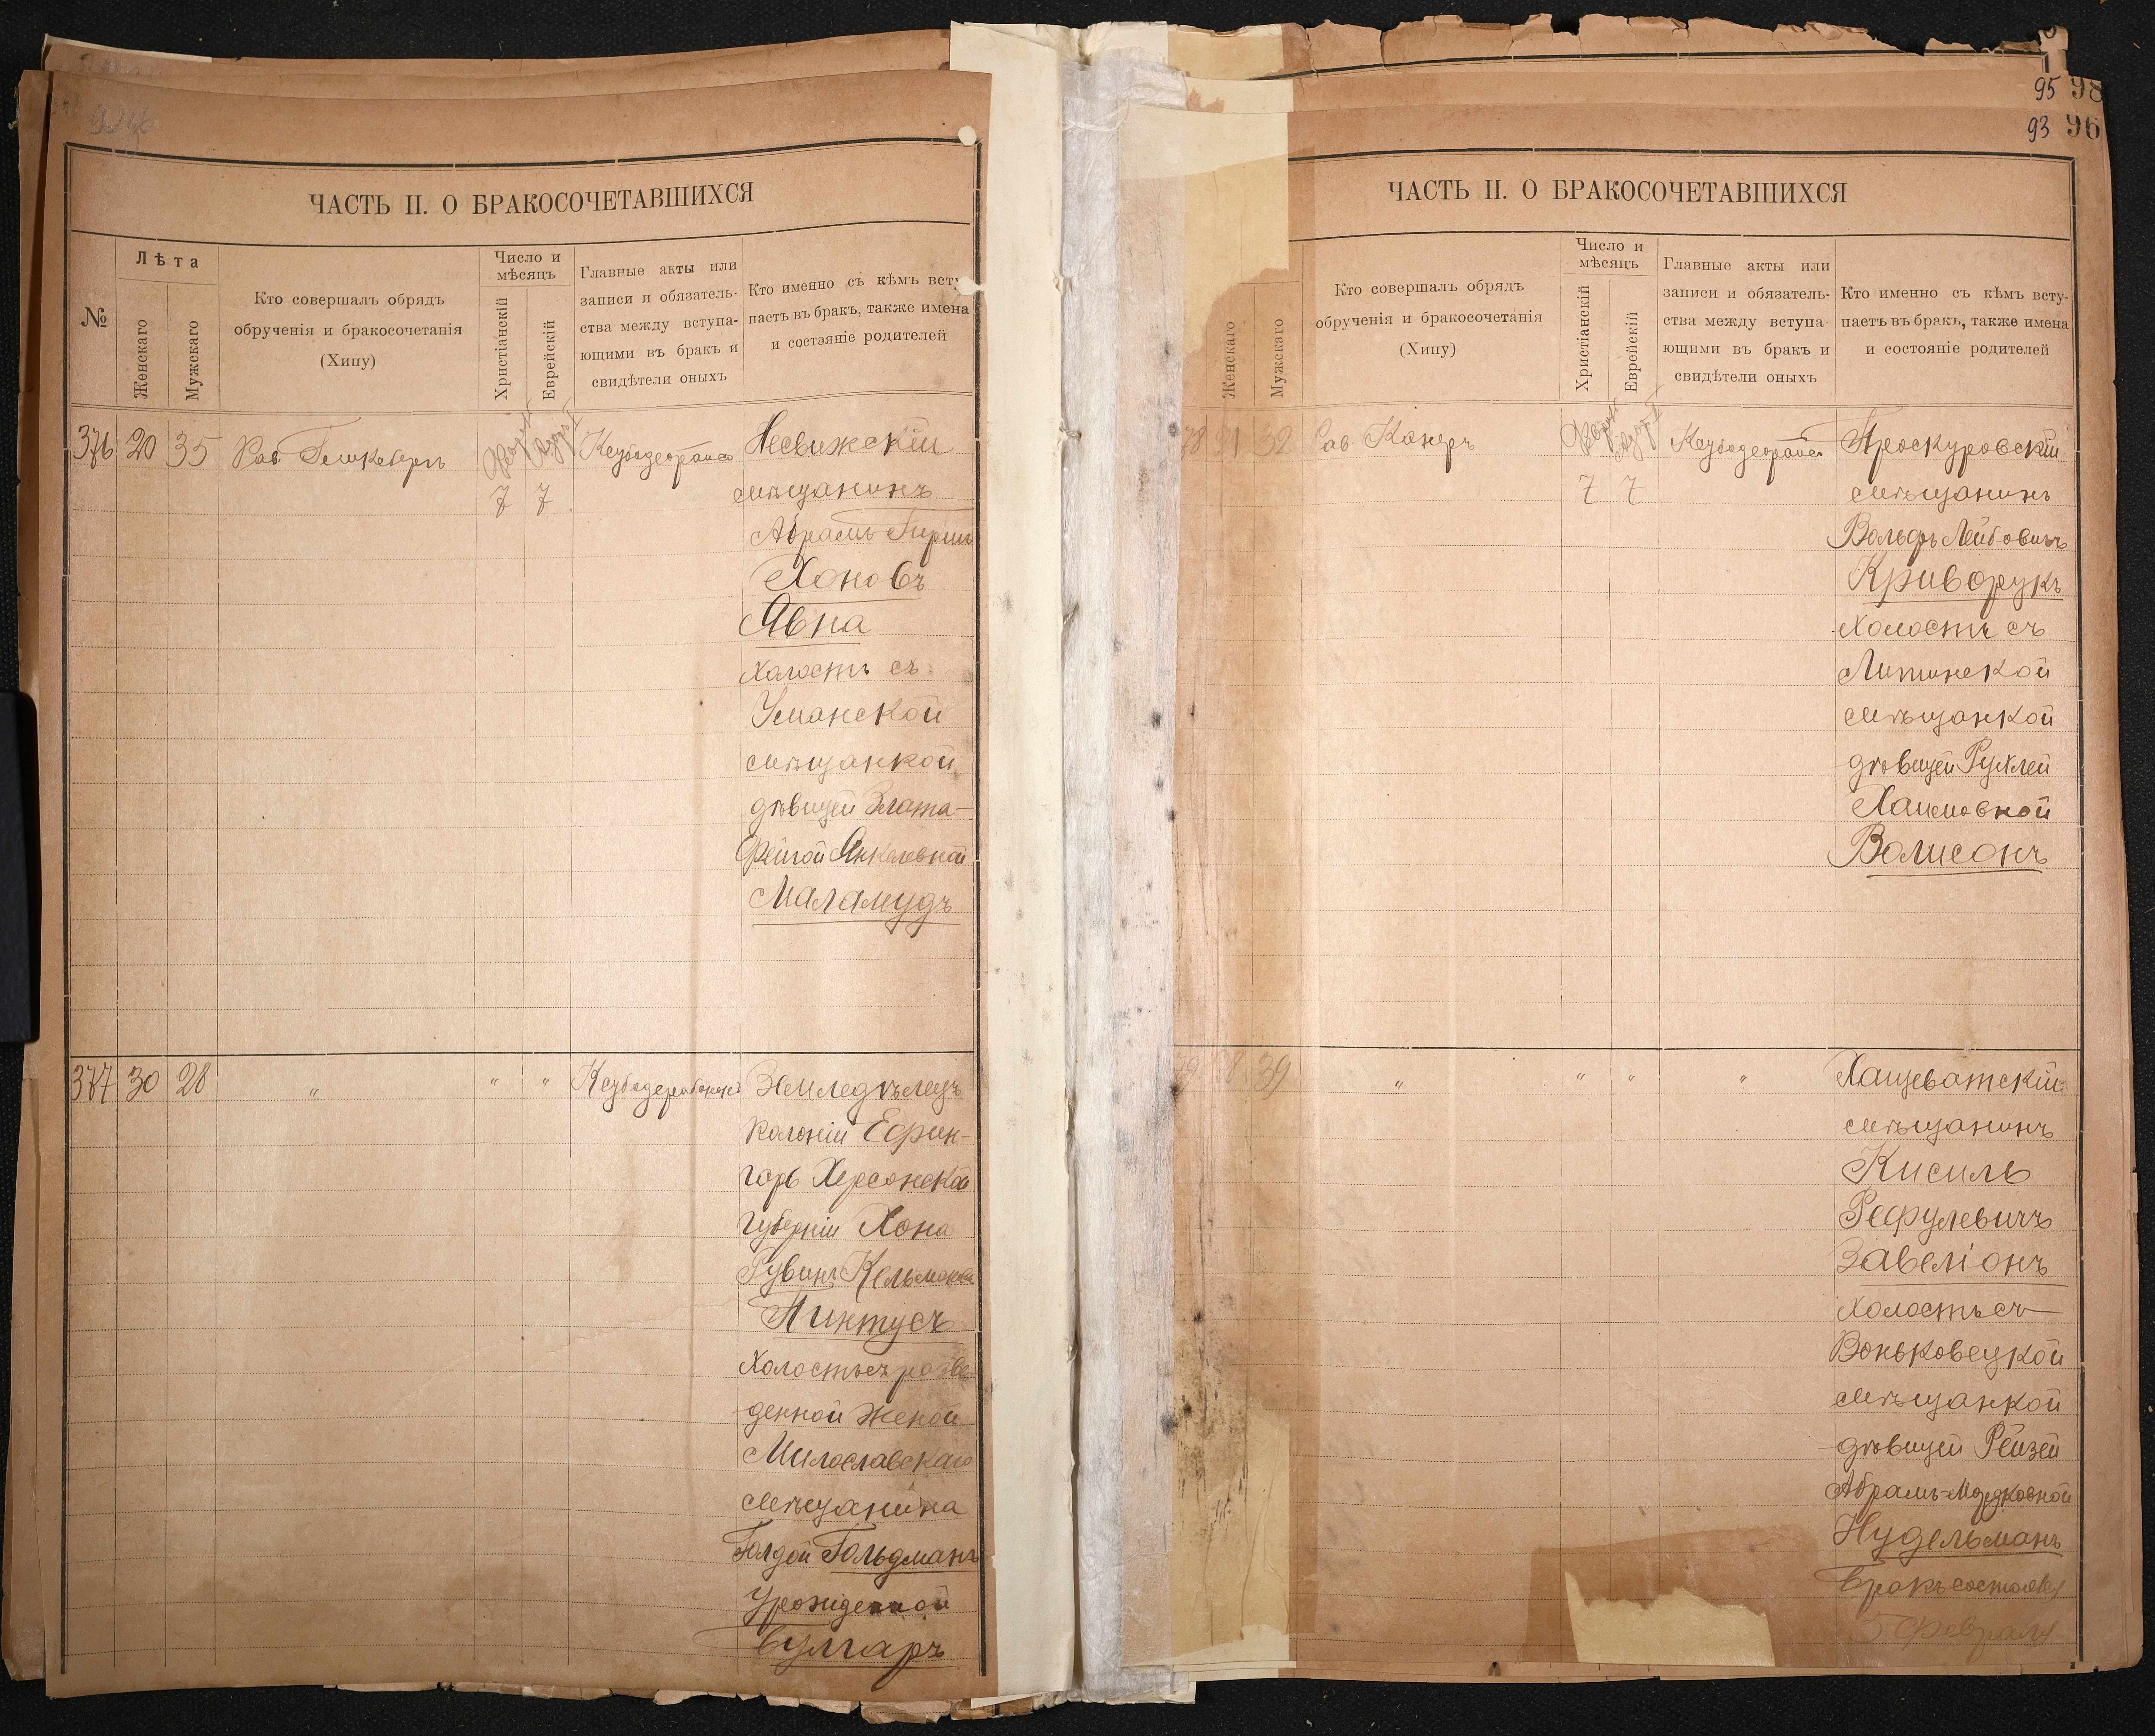 ЧАСТЬ II. О БРАКОСОЧЕТАВШИХСЯ
№
Лѣта
Женскаго
Мужскаго
Кто совершалъ обрядъ
обрученія и бракосочетанія
(Хипу)
Число и
мѣсяцъ
Христіанскій
Еврейскій
Главные акты или
записи и обязатель-
ства между вступа-
ющими въ бракъ и
свидѣтели оныхъ
Кто именно съ кѣмъ всту
паетъ въ бракъ, также имена
и состояніе родителей
376 20 35 Рав 7 7
Несвижскій
мѣщанинъ
Абрамъ Гирш
Хоновъ
Явна
холостъ съ
Уманской
мѣщанкой
дѣвицей Злата-
Фейгой Янкелевной
Маламудъ
377 30 28 " " "
Земледѣлецъ
колоніи Ефин-
гарь Херсонской
губерніи Хона
Рувинъ Кельманов
Пиктусъ
холостъ съ разве-
денной женой
Милославскаго
мѣщанина
Голдой Гольдманъ
урожденной
Булгаръ
95 98
93 96
ЧАСТЬ II. О БРАКОСОЧЕТАВШИХСЯ
Женскаго
Мужскаго
Кто совершалъ обрядъ
обрученія и бракосочетанія
(Хипу)
Число и
мѣсяцъ
Христіанскій
Еврейскій
Главные акты или
записи и обязатель-
ства между вступа-
ющими въ бракъ и
свидѣтели оныхъ
Кто именно съ кѣмъ всту-
паетъ въ бракъ, также имена
и состояніе родителей
78 21 32 Рав. Канеръ 7 7
Проскуровскій
мѣщанинъ
Вольфъ Лейбовичъ
Криворукъ
холостъ съ
Литинской
мѣщанкой
дѣвицей Рухлей
Хаимовной
Волисонъ
79 28 39 " " " "
Хащеватскій
мѣщанинъ
Кисиль
Рефулевичъ
Завеліонъ
холостъ съ
Воньковецкой
мѣщанкой
дѣвицей Рейзей
Абрамъ-Мордковной
Нудельманъ
Бракъ состоялся
5 февраля